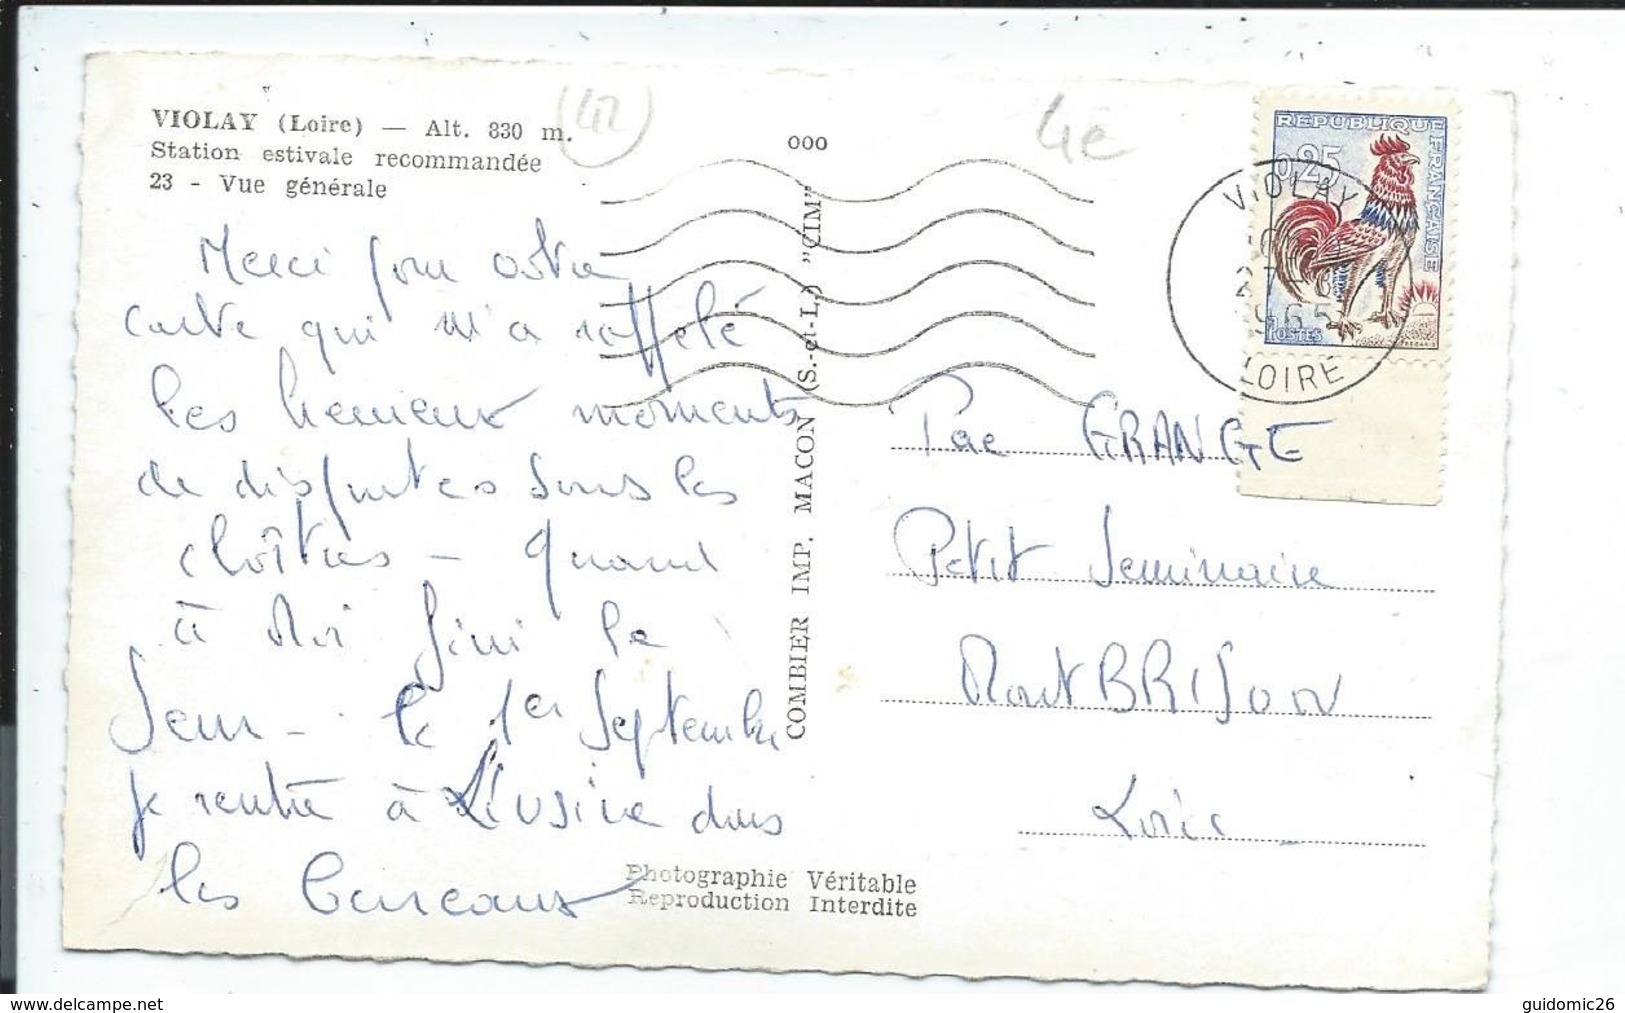 VIOLAY (Loire) — Alt. 830 m.
Station estivale recommandée
23 - Vue générale
(42)
ooo
4e
REPUBLIQUE FRANÇAISE
0,25
POSTES
VIOLAY
27-8
1965
LOIRE
Merci pour votre
carte qui m'a rappelé
les heureux moments
de disputes sous les
cloîtres - quand
à moi fini le
Sem - le 1er Septembre
je rentre à l'usine dans
les bureaux
COMBIER IMP. MACON (S.-et-L.) "CIM"
GRANGE
Petit Seminaire
MontBRISON
Loire
Photographie Véritable
Reproduction Interdite
www.delcampe.net
guidomic26